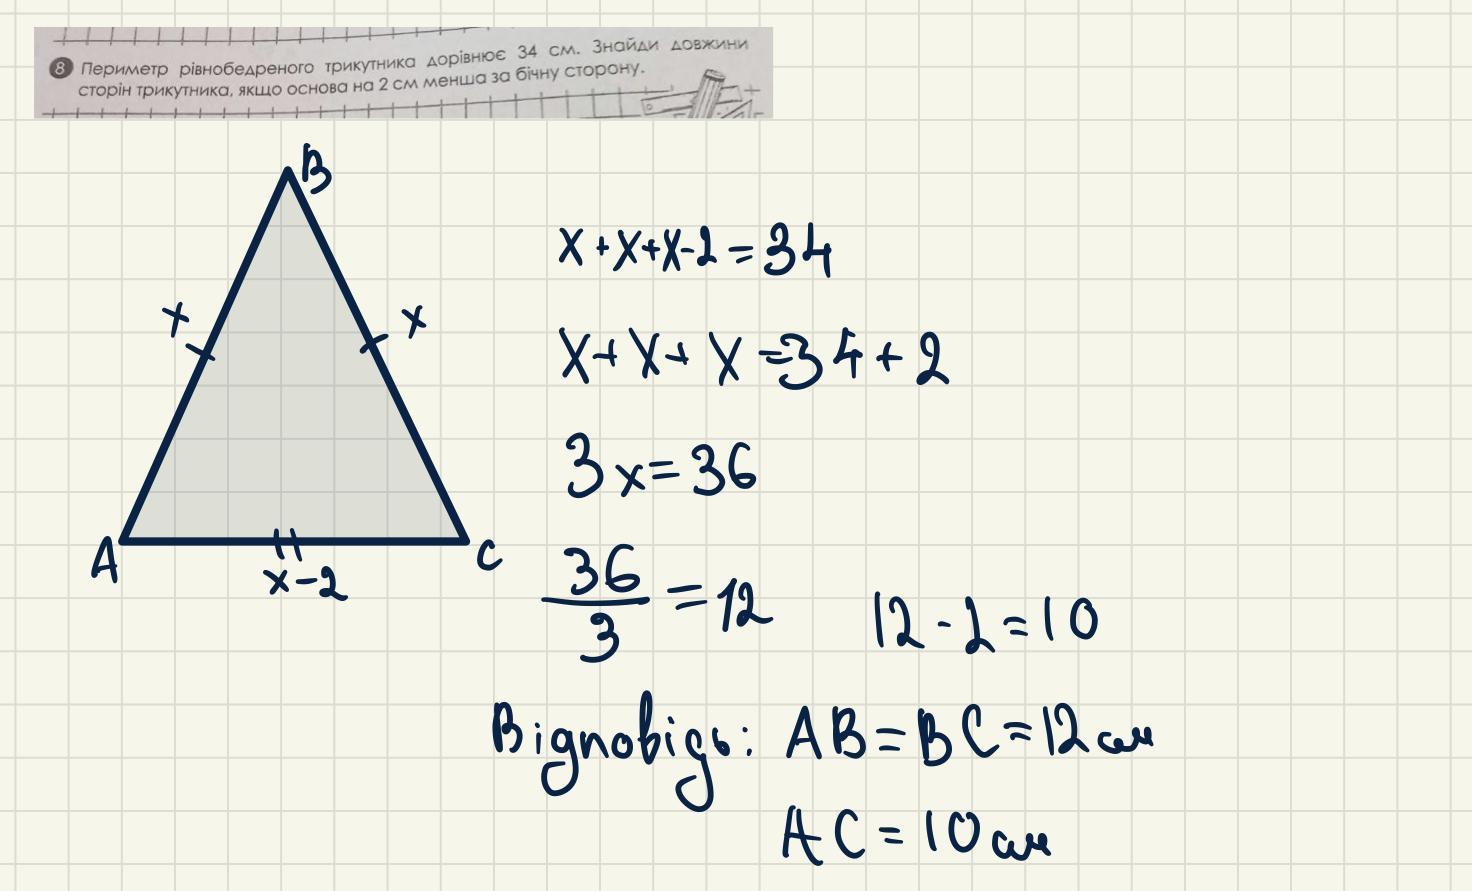 8 Периметр рівнобедреного трикутника дорівнює 34 см. Знайди довжини
сторін трикутника, якщо основа на 2 см менша за бічну сторону.
B
x + x + x - 2 = 34
x x
x + x + x = 34 + 2
3x = 36
A C
x - 2
36
3
= 12
12 - 2 = 10
Відповідь: AB = BC = 12 см
AC = 10 см